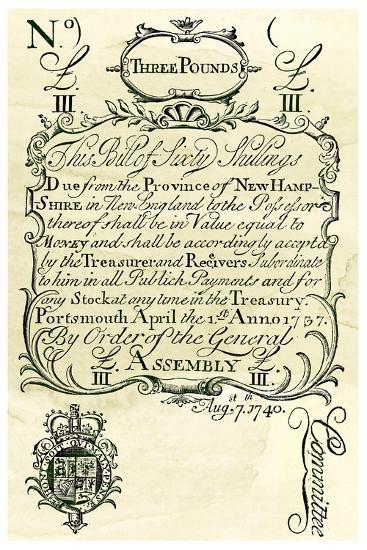 No) (
£ THREE POUNDS £
III III
This Bill of Sixty Shilings
Due from the Province of NEW HAMP-
SHIRE in New England to the Possessor
thereof shall be in Value equal to
MONEY and shall be accordingly accepted
by the Treasurer and Receivers Subordinate
to him in all Publick Payments and for
any Stock at any time in the Treasury.
Portsmouth April the 1.st Anno 1737.
By Order of the General
£. ASSEMBLY £.
III III.
Augst. 7.th 1740.
Committee
HONI SOIT QUI MAL Y PENSE